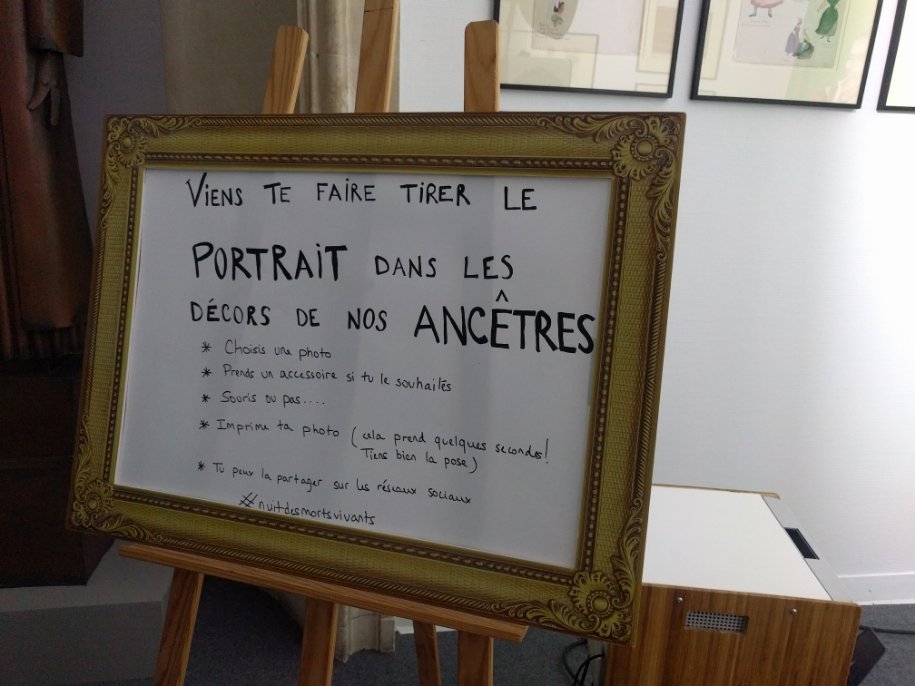 Viens te faire tirer le
PORTRAIT dans les
décors de nos ANCÊTRES
* Choisis une photo
* Prends un accessoire si tu le souhaites
* Souris ou pas....
* Imprime ta photo (cela prend quelques secondes!
Tiens bien la pose)
* Tu peux la partager sur les réseaux sociaux
#nuitdesmortsvivants